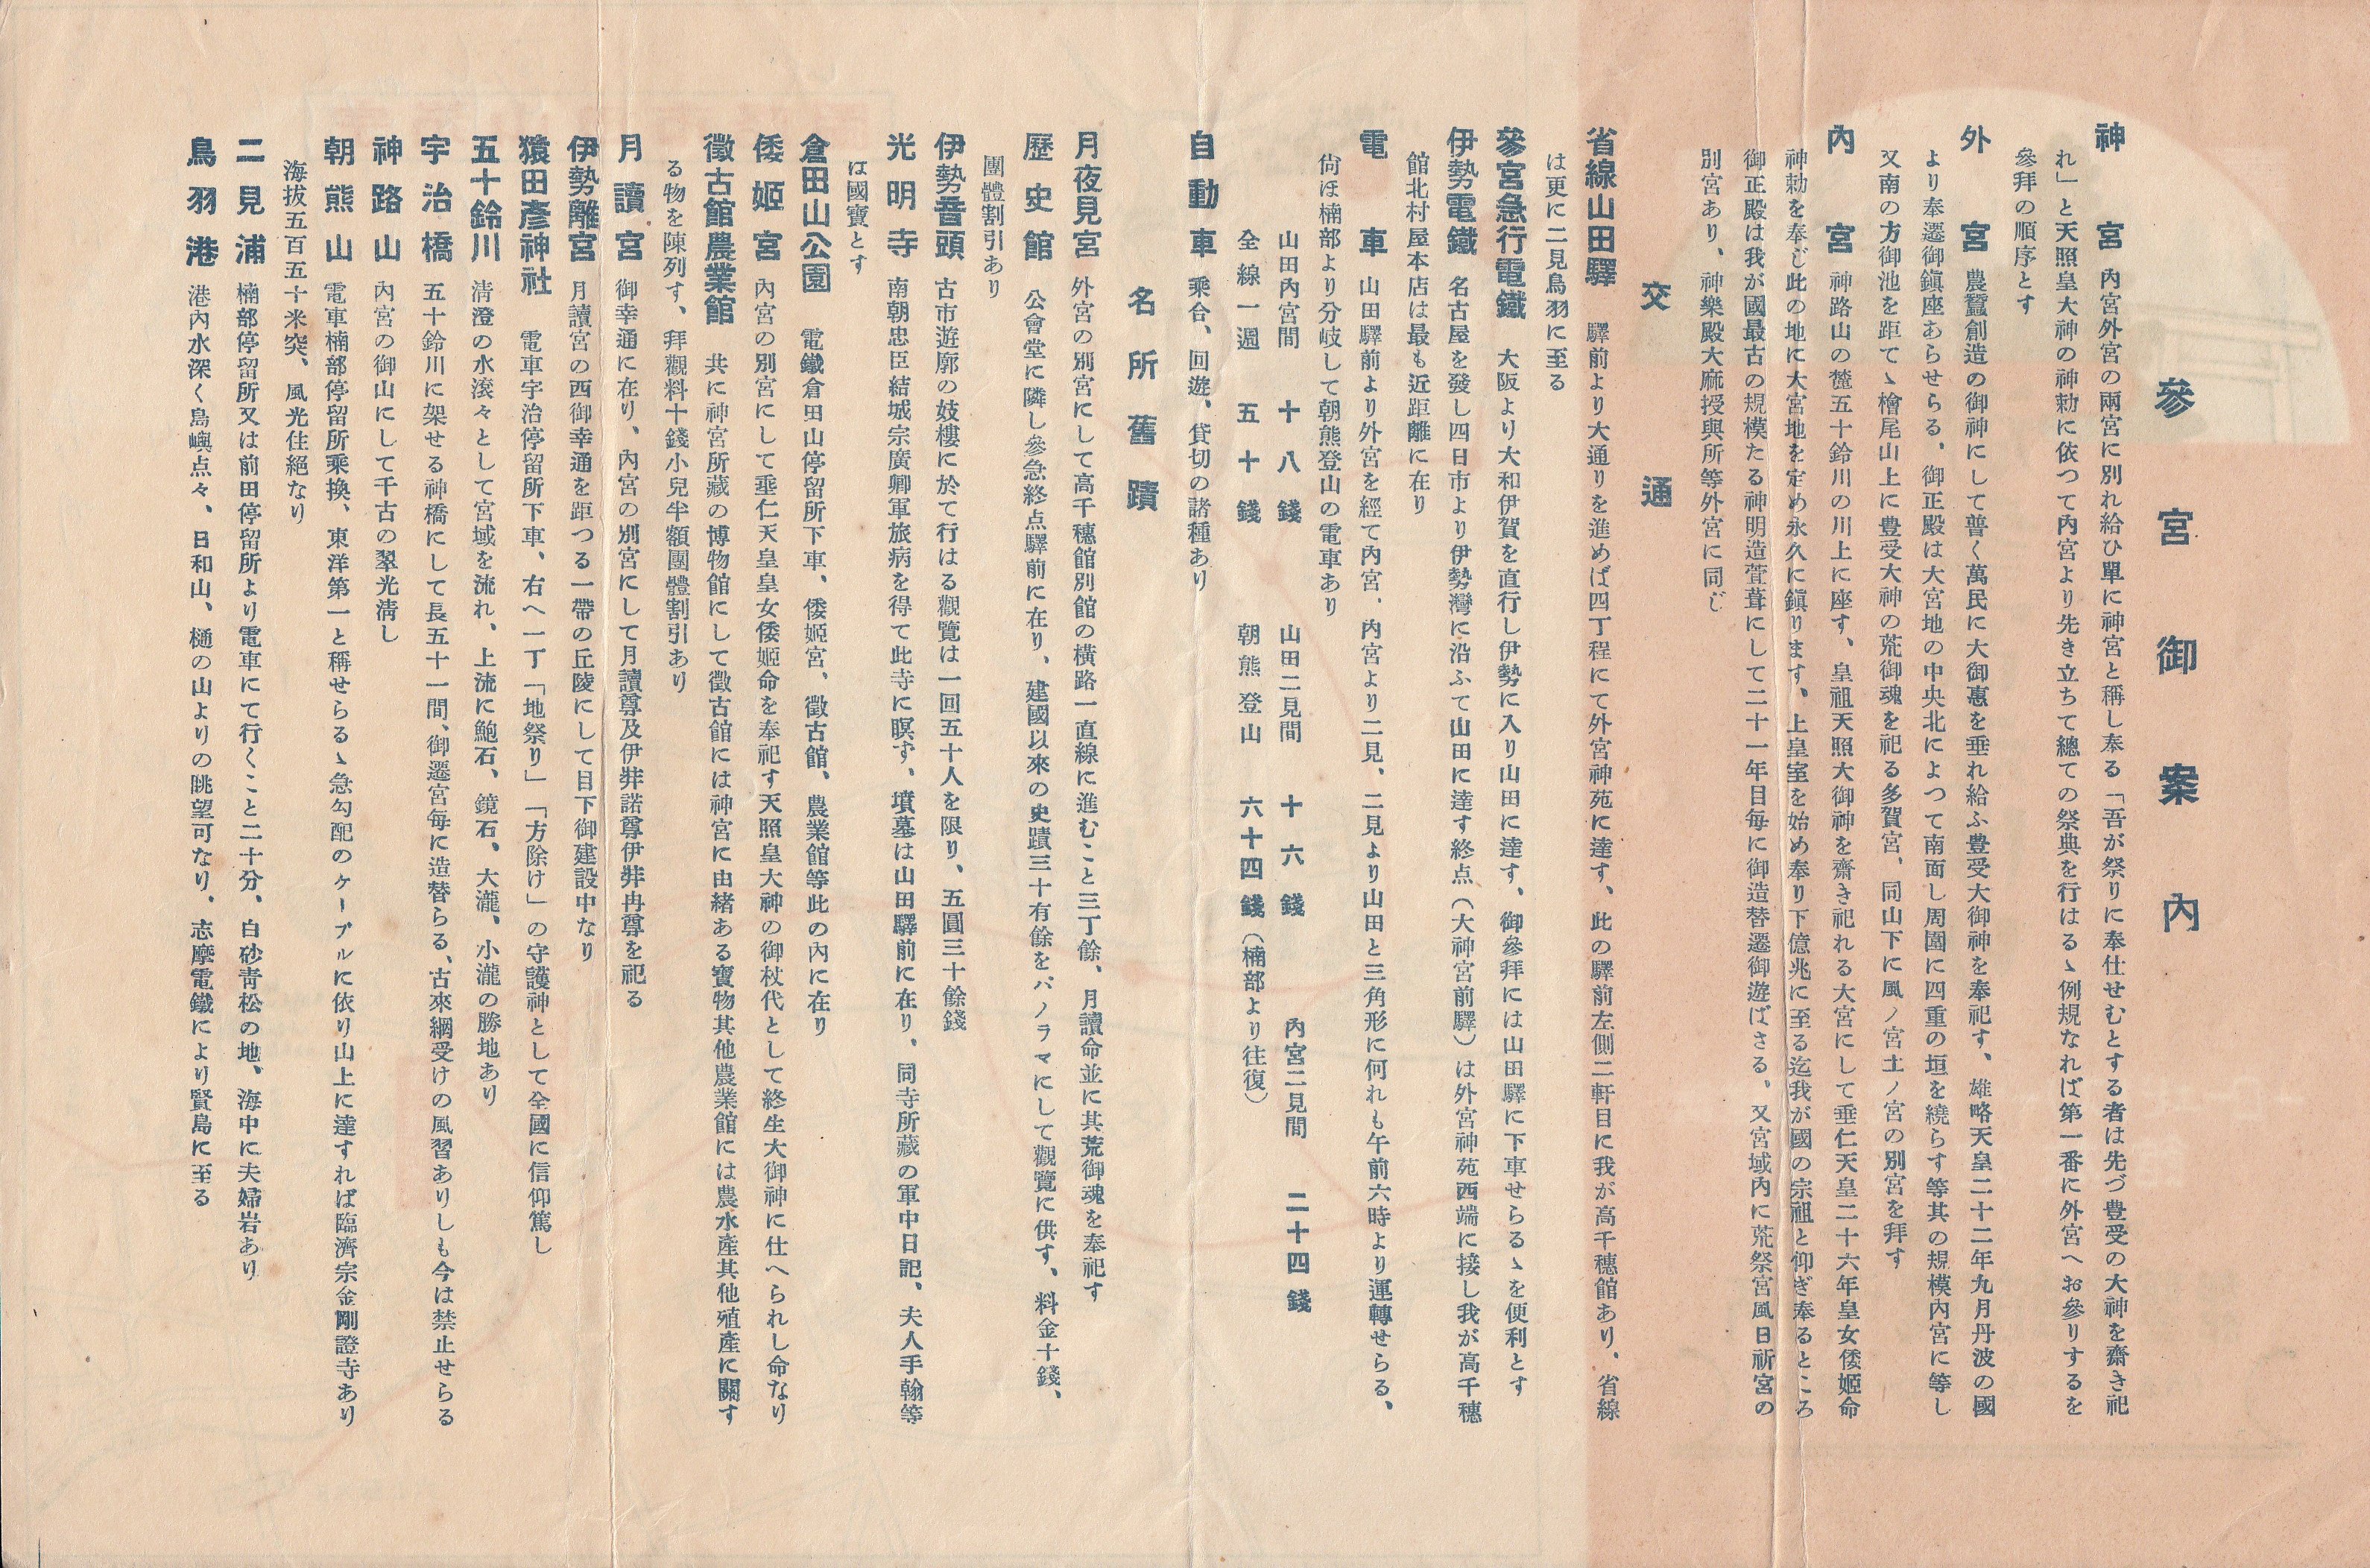 參宮御案内
神宮 内宮外宮の兩宮に別れ給ひ單に神宮と稱し奉る「吾が祭りに奉仕せむとする者は先づ豊受の大神を齋き祀
れ」と天照皇大神の神勅に依つて内宮より先き立ちて總ての祭典を行はるゝ例規なれば第一番に外宮へお參りするを
參拜の順序とす
外宮 農蠶創造の御神にして普く萬民に大御惠を垂れ給ふ豊受大御神を奉祀す、雄略天皇二十二年九月丹波の國
より奉遷御鎭座あらせらる、御正殿は大宮地の中央北によつて南面し周圍に四重の垣を繞らす等其の規模内宮に等し
又南の方御池を距てゝ檜尾山上に豊受大神の荒御魂を祀る多賀宮、同山下に風ノ宮土ノ宮の別宮を拜す
内宮 神路山の麓五十鈴川の川上に座す、皇祖天照大御神を齋き祀れる大宮にして垂仁天皇二十六年皇女倭姫命
神勅を奉じ此の地に大宮地を定め永久に鎭ります、上皇室を始め奉り下億兆に至る迄我が國の宗祖と仰ぎ奉るところ
御正殿は我が國最古の規模たる神明造萱葺にして二十一年目毎に御造替遷御遊ばさる、又宮域内に荒祭宮風日祈宮の
別宮あり、神樂殿大麻授與所等外宮に同じ
交通
省線山田驛 驛前より大通りを進めば四丁程にて外宮神苑に達す、此の驛前左側二軒目に我が高千穗館あり、省線
は更に二見鳥羽に至る
參宮急行電鐵 大阪より大和伊賀を直行し伊勢に入り山田に達す、御參拜には山田驛に下車せらるゝを便利とす
伊勢電鐵 名古屋を發し四日市より伊勢灣に沿ふて山田に達す終点（大神宮前驛）は外宮神苑西端に接し我が高千穗
館北村屋本店は最も近距離に在り
電車 山田驛前より外宮を經て内宮、内宮より二見、二見より山田と三角形に何れも午前六時より運轉せらる、
尙ほ楠部より分岐して朝熊登山の電車あり
山田内宮間 十八錢 山田二見間 十六錢 内宮二見間 二十四錢
全線一週 五十錢 朝熊登山 六十四錢（楠部より往復）
自動車 乘合、回遊、貸切の諸種あり
名所舊蹟
月夜見宮 外宮の別宮にして高千穗館別館の橫路一直線に進むこと三丁餘、月讀命並に其荒御魂を奉祀す
歷史館 公會堂に隣し參急終点驛前に在り、建國以來の史蹟三十有餘をパノラマにして觀覽に供す、料金十錢、
團體割引あり
伊勢音頭 古市遊廓の妓樓に於て行はる觀覽は一回五十人を限り、五圓三十餘錢
光明寺 南朝忠臣結城宗廣卿軍旅病を得て此寺に瞑す、墳墓は山田驛前に在り、同寺所藏の軍中日記、夫人手翰等
は國寶とす
倉田山公園 電鐵倉田山停留所下車、倭姬宮、徵古館、農業館等此の内に在り
倭姬宮 内宮の別宮にして垂仁天皇皇女倭姬命を奉祀す天照皇大神の御杖代として終生大御神に仕へられし命なり
徵古館農業館 共に神宮所藏の博物館にして徵古館には神宮に由緖ある寶物其他農業館には農水產其他殖產に關す
る物を陳列す、拜觀料十錢小兒半額團體割引あり
月讀宮 御幸通に在り、内宮の別宮にして月讀尊及伊弉諾尊伊弉冉尊を祀る
伊勢離宮 月讀宮の西御幸通を距つる一帶の丘陵にして目下御建設中なり
猿田彥神社 電車宇治停留所下車、右へ一丁「地祭り」「方除け」の守護神として全國に信仰篤し
五十鈴川 淸澄の水滾々として宮域を流れ、上流に鮑石、鏡石、大瀧、小瀧の勝地あり
宇治橋 五十鈴川に架せる神橋にして長五十一間、御遷宮每に造替らる、古來綱受けの風習ありしも今は禁止せらる
神路山 内宮の御山にして千古の翠光淸し
朝熊山 電車楠部停留所乘換、東洋第一と稱せらるゝ急勾配のケーブルに依り山上に達すれば臨濟宗金剛證寺あり
海拔五百五十米突、風光佳絕なり
二見浦 楠部停留所又は前田停留所より電車にて行くこと二十分、白砂靑松の地、海中に夫婦岩あり
鳥羽港 港内水深く島嶼点々、日和山、樋の山よりの眺望可なり、志摩電鐵により賢島に至る